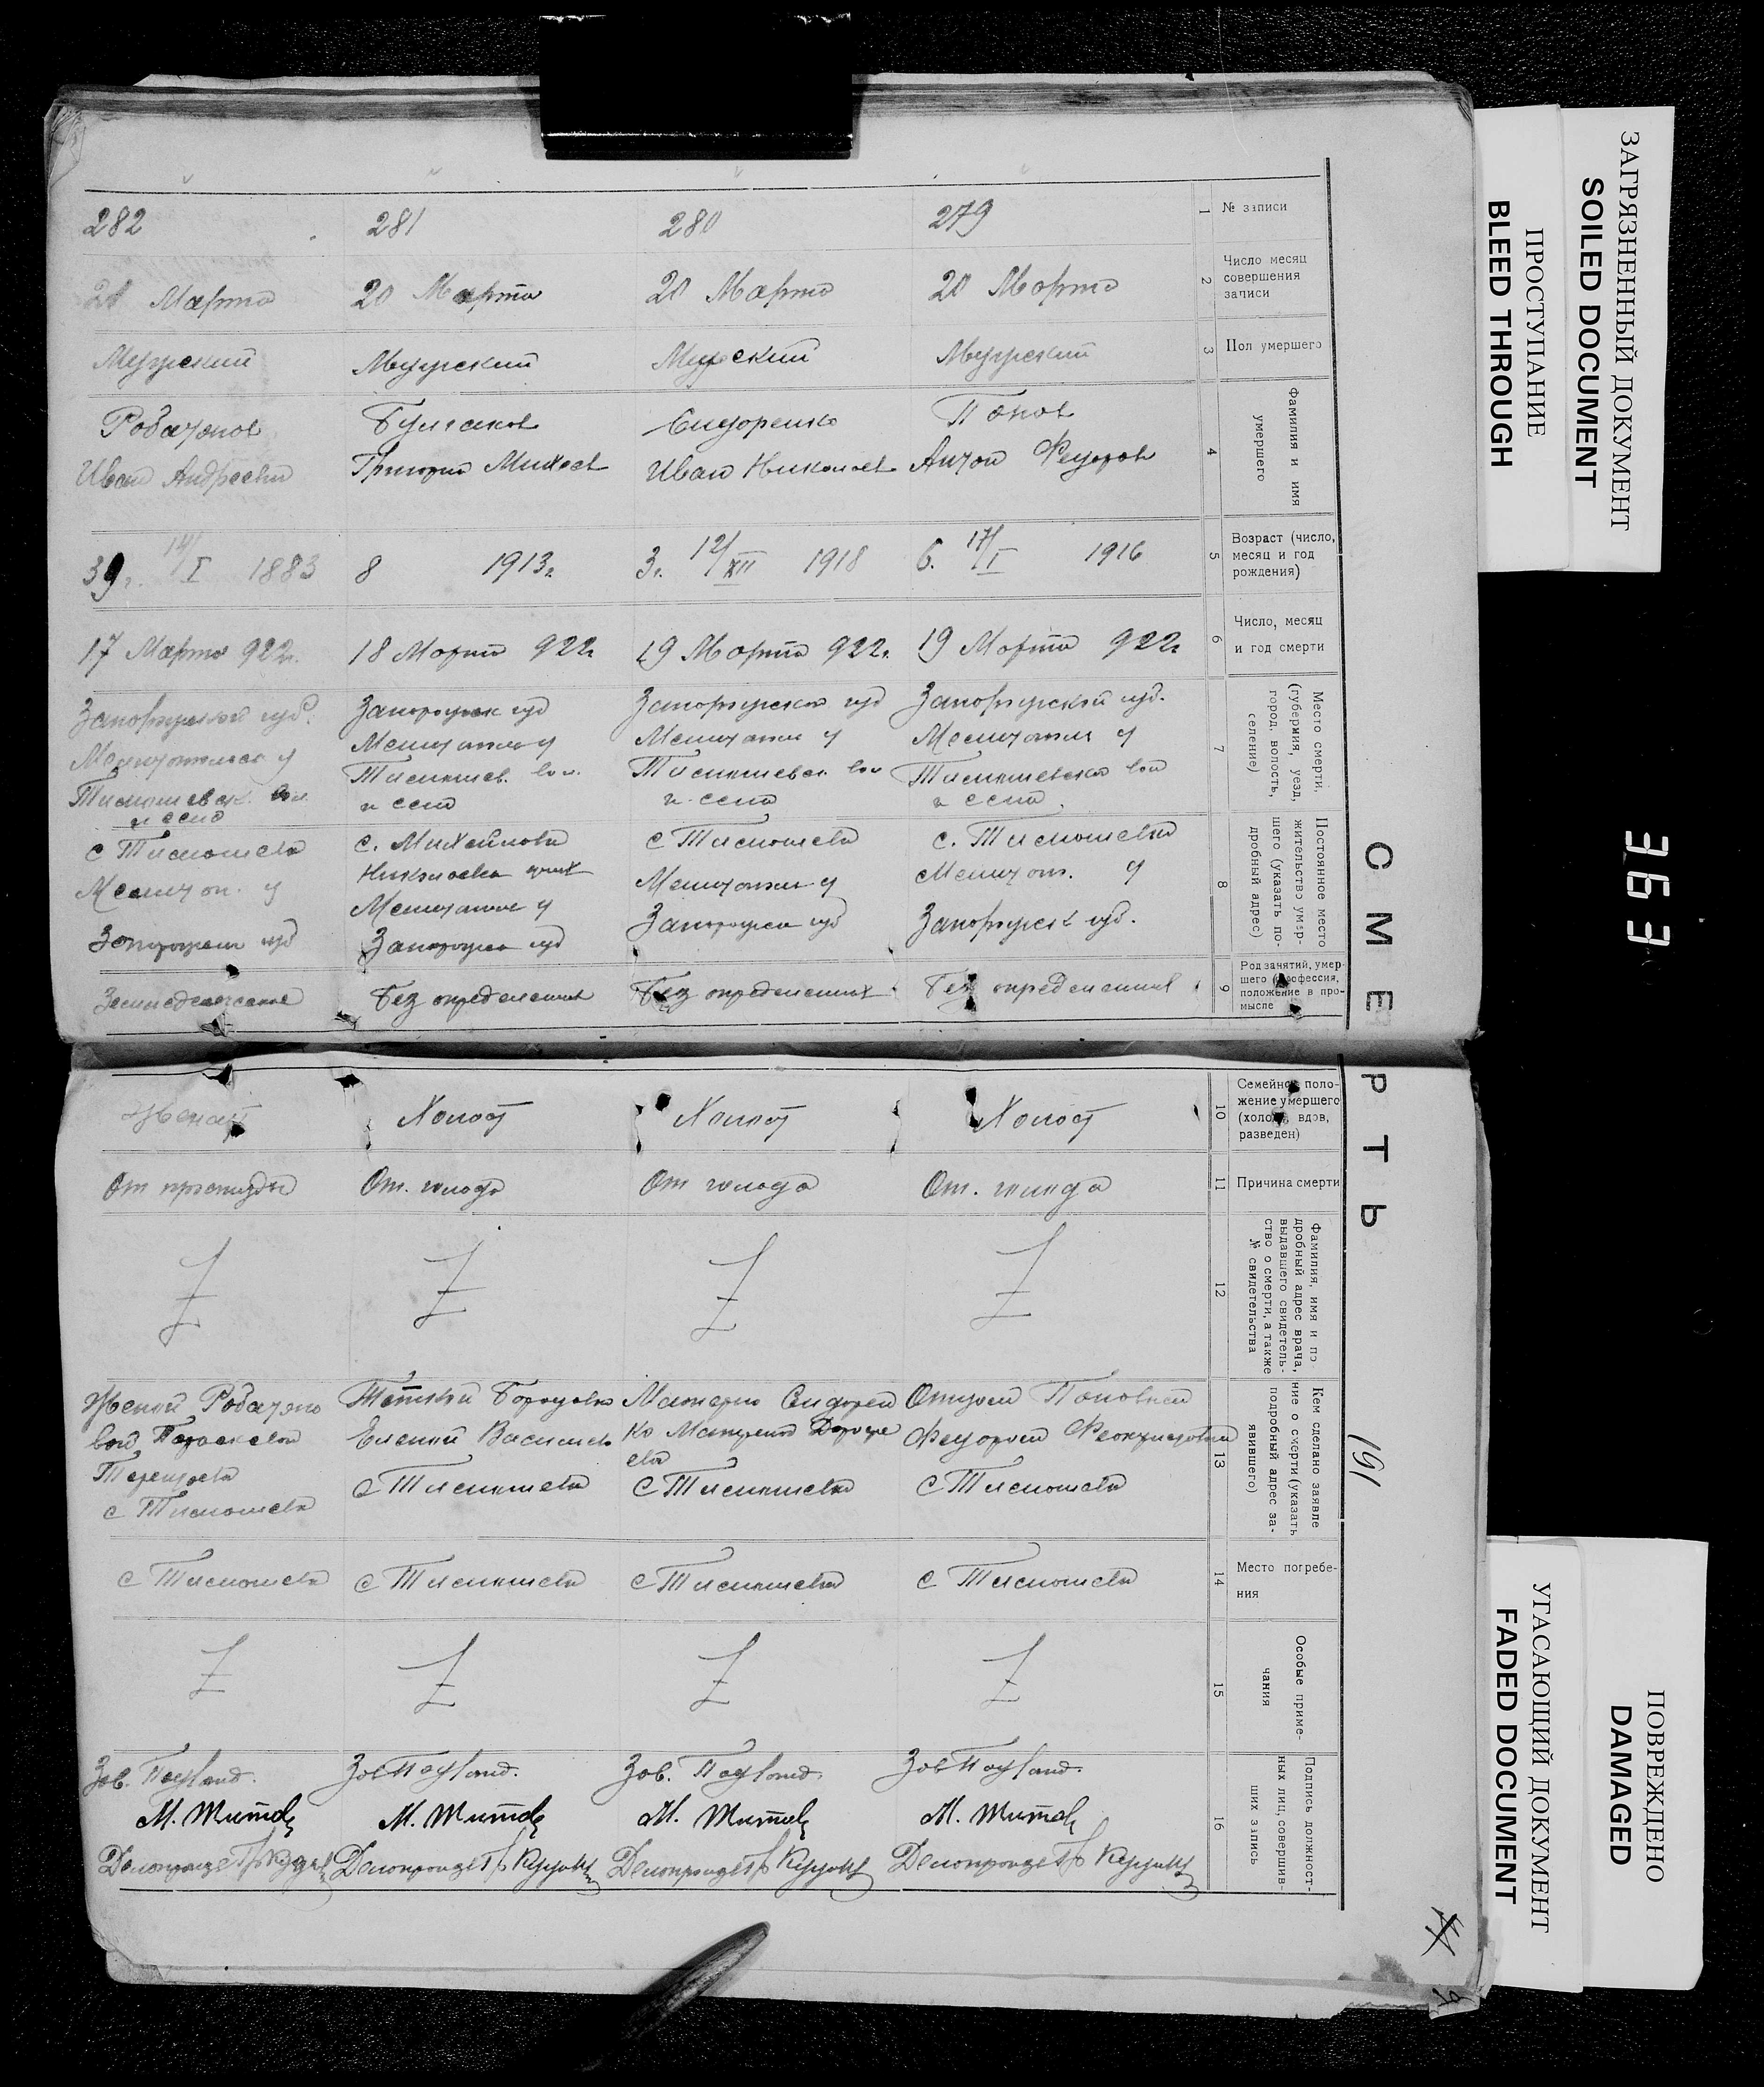 ЗАГРЯЗНЕННЫЙ ДОКУМЕНТ
SOILED DOCUMENT
ПРОСТУПАНИЕ
BLEED THROUGH
363
СМЕРТЬ
191
№ записи
1
279
280
281
282
Число месяц
совершения
записи
2
20 Марта
20 Марта
20 Марта
20 Марта
Пол умершего
3
Мужский
Мужский
Мужский
Мужский
Фамилия и имя
умершего
4
Попов
Антон Федоров
Сидоренко
Иван Николаев
Григорий Михеев
Иван Андреевич
Возраст (число,
месяц и год
рождения)
5
6. 17/I 1916
3г. 12/XII 1918
8 1913г.
39г. 14/I 1883
Число, месяц
и год смерти
6
19 Марта 922г
19 Марта 922г.
18 Марта 922г
17 Марта 922г.
Место смерти,
(губерния, уезд,
город, волость,
селение)
7
Запорожской губ.
Мелитопол у
Тимошевской вол
и села
Запорожской губ
Мелитопол у
Тимошевск вол
и села
Запорожск губ
Мелитопол у
Тимошев. вол.
и села
Запорожской губ.
Мелитопольск у
Тимошевск. вол.
и село
Постоянное место
жительство умер-
шего (указать по-
дробный адрес)
8
с. Тимошевка
Мелитоп. у
Запорожск губ.
с Тимошевка
Мелитопол у
Запорожск губ
с. Михайловка
Мелитопол у
Запорожск губ
с Тимошевка
Мелитоп. у
Запорожск губ
Род занятий, умер-
шего (профессия,
положение в про-
мысле
9
Без определенных
Без определенных
Без определенных
Семейное поло-
жение умершего
(холост, вдов,
разведен)
10
Холост
Холост
Холост
Женат
Причина смерти
11
От. голода
От голода
От. голода
От
Фамилия, имя и по-
дробный адрес врача,
выдавшего свидетель-
ство о смерти, а также
№ свидетельства
12
Z
Z
Z
Z
Кем сделано заявле
ние о смерти (указать
подробный адрес за-
явившего)
13
Отцом Поповым
Федором
с Тимошевка
Матерью Сидорен
ко
с Тимошевка
Теткой
Еленой
с Тимошевка
Женой
с Тимошевка
Место погребе-
ния
14
с Тимошевка
с Тимошевка
с Тимошевка
с Тимошевка
Особые приме-
чания
15
Z
Z
Z
Z
Подпись должност-
ных лиц, совершив-
ших запись
16
Зав.
М. Титов
Делопроизв
Зав.
М. Титов
Делопроизв
Зав.
М. Титов
Делопроизв
Зав.
М. Титов
Делопроизв
УГАСАЮЩИЙ ДОКУМЕНТ
FADED DOCUMENT
ПОВРЕЖДЕНО
DAMAGED